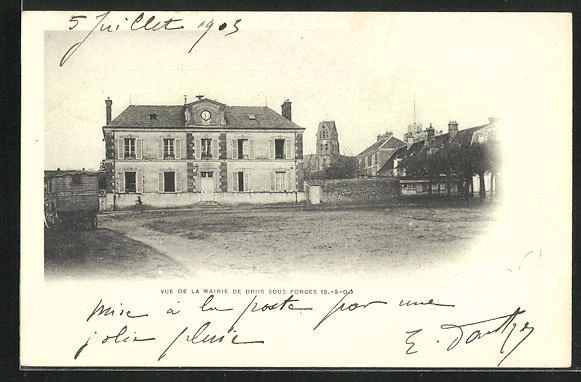 5 Juillet 1903
VUE DE LA MAIRIE DE BRIIS SOUS FORGES (S.-&-O.)
Mise à la poste par une
jolie pluie
E. Dautry